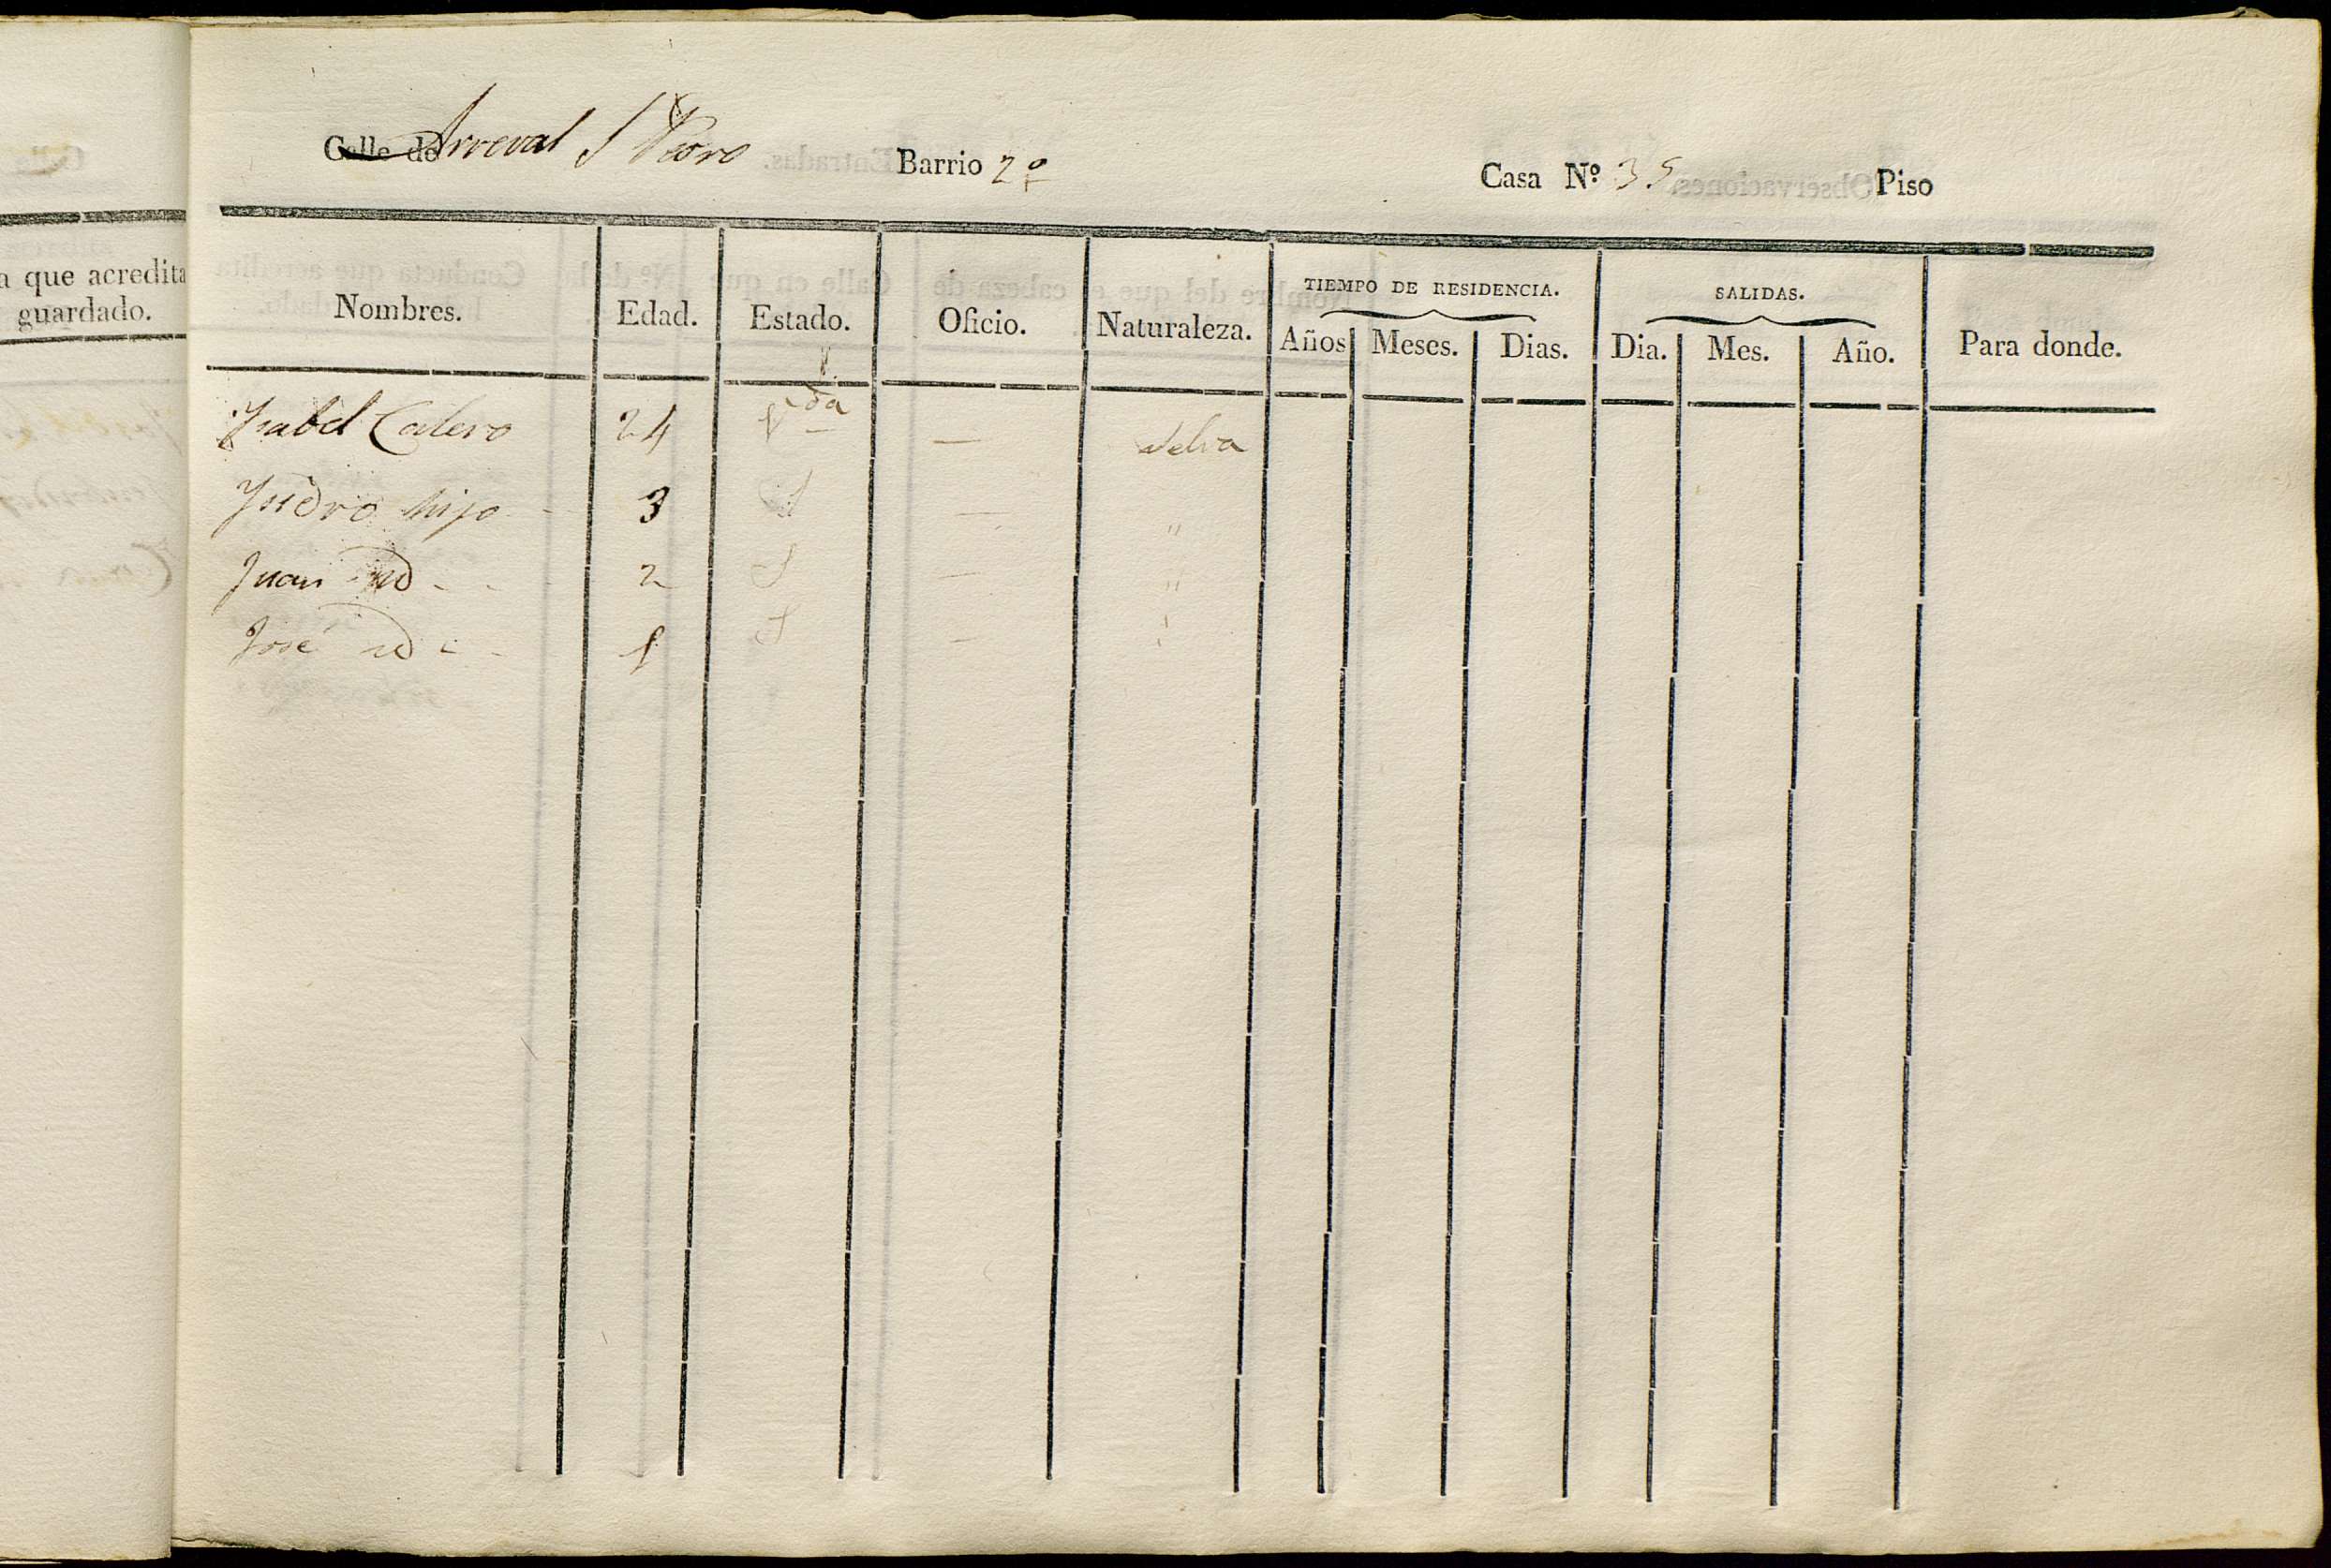 a que acredita
guardado.
Calle de Arreval S Pedro Barrio 2º Casa Nº 35 Piso
Nombres. Edad. Estado. Oficio. Naturaleza. TIEMPO DE RESIDENCIA. SALIDAS. Para donde.
Años Meses. Dias. Dia. Mes. Año.
Ysabel Calero 24 Vda — Selva
Ysidro hijo - 3 S — "
Juan id - - 2 S — "
José id - - 1 S — "